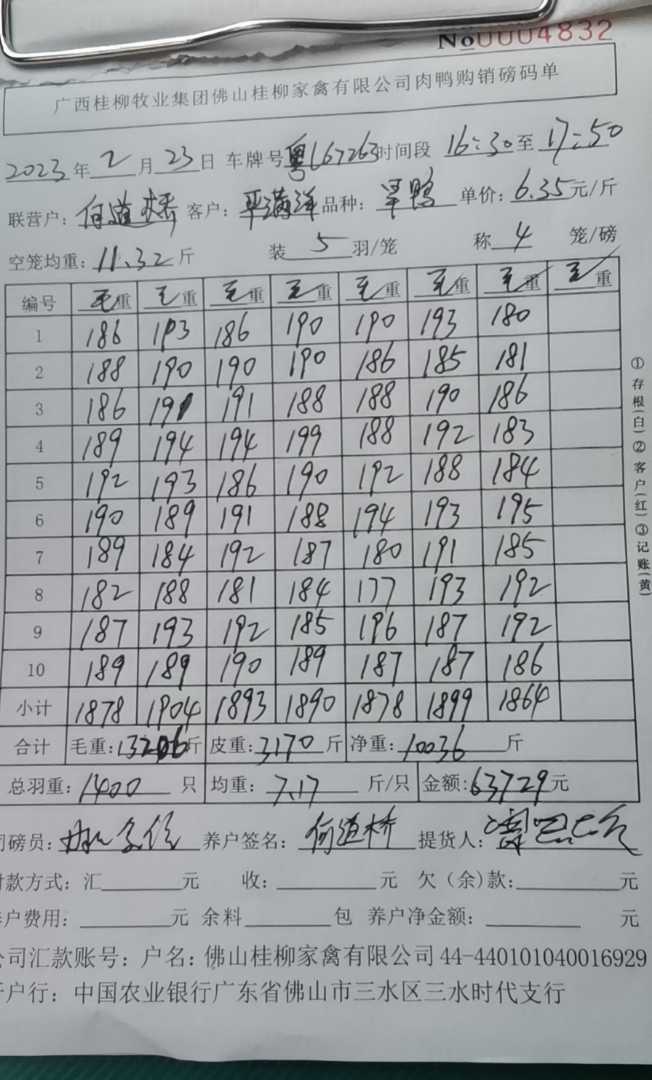 No0004832
广西桂柳牧业集团佛山桂柳家禽有限公司肉鸭购销磅码单
2023年2月23日 车牌号粤L67263时间段 16:30至17:50
联营户:何道桥 客户: 品种: 单价:6.35元/斤
空笼均重:11.32斤 装5羽/笼 称4笼/磅
编号 毛重 毛重 毛重 毛重 毛重 毛重 毛重 毛重
1 186 193 186 190 190 193 180
2 188 190 190 190 186 185 181
3 186 191 191 188 188 190 186
4 189 194 194 199 188 192 183
5 192 193 186 190 192 188 184
6 190 189 191 188 194 193 195
7 189 184 192 187 180 191 185
8 182 188 181 184 177 193 192
9 187 193 192 185 196 187 192
10 189 189 190 189 187 187 186
小计 1878 1904 1893 1890 1878 1899 1864
合计 毛重:13206斤 皮重:3170斤 净重:10036斤
总羽重:1400只 均重:7.17斤/只 金额:63729元
司磅员: 养户签名:何道桥 提货人:
付款方式:汇 元 收: 元 欠(余)款: 元
养户费用: 元 余料 包 养户净金额: 元
公司汇款账号:户名:佛山桂柳家禽有限公司44-440101040016929
开户行:中国农业银行广东省佛山市三水区三水时代支行
①存根(白)②客户(红)③记账(黄)